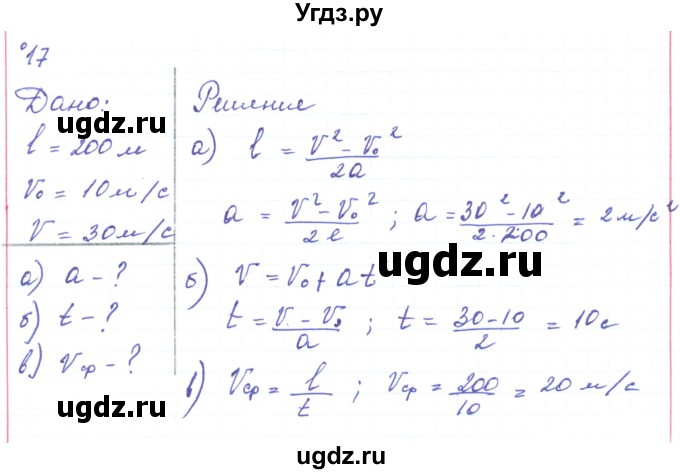 Угдз.ру
°17
Дано:
l = 200 м
V₀ = 10 м/с
V = 30 м/с
а) a - ?
б) t - ?
в) Vср - ?
Решение
а) l = (V² - V₀²)/2a
a = (V² - V₀²)/2l ; a = (30² - 10²)/(2·200) = 2 м/с²
б) V = V₀ + at
t = (V - V₀)/a ; t = (30 - 10)/2 = 10 с
в) Vср = l/t ; Vср = 200/10 = 20 м/с
ugdz.ru
ugdz.ru
ugdz.ru
ugdz.ru
ugdz.ru
ugdz.ru
ugdz.ru